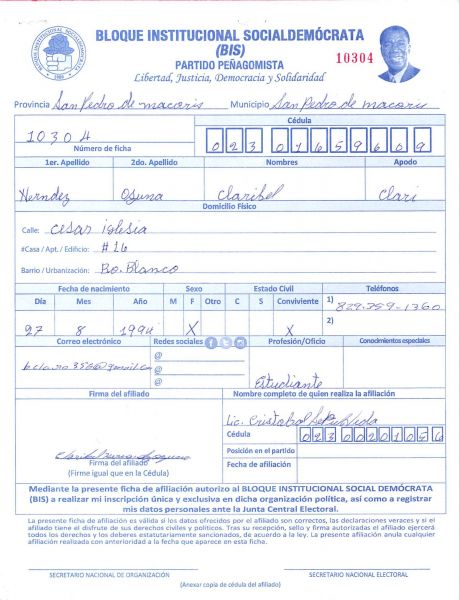 BLOQUE INSTITUCIONAL SOCIALDEMÓCRATA
(BIS)
PARTIDO PEÑAGOMISTA
10304
Libertad, Justicia, Democracia y Solidaridad
Provincia San Pedro de macoris Municipio San Pedro de macoris
Cédula
10304
02301659609
Número de ficha
1er. Apellido 2do. Apellido Nombres Apodo
Herndez Osuna Claribel Clari
Domicilio Físico
Calle: cesar iglesia
#Casa / Apt. / Edificio: #16
Barrio / Urbanización: Bo. Blanco
Fecha de nacimiento Sexo Estado Civil Teléfonos
Día Mes Año M F Otro C S Conviviente 1) 829-759-1360
27 8 1994 X X 2)
Correo electrónico Redes sociales Profesión/Oficio Conocimientos especiales
@
@
@
Estudiante
Firma del afiliado Nombre completo de quien realiza la afiliación
Lic. Cristobal
Cédula
02300201056
Posición en el partido
Firma del afiliado
(Firme igual que en la Cédula)
Fecha de afiliación
Mediante la presente ficha de afiliación autorizo al BLOQUE INSTITUCIONAL SOCIAL DEMÓCRATA
(BIS) a realizar mi inscripción única y exclusiva en dicha organización política, así como a registrar
mis datos personales ante la Junta Central Electoral.
La presente ficha de afiliación es válida si los datos ofrecidos por el afiliado son correctos, las declaraciones veraces y si el
afiliado tiene el disfrute de sus derechos civiles y políticos. Tras su recepción, sello y firma autorizadas el afiliado ejercerá
todos los derechos y los deberes estatutariamente sancionados, de acuerdo a la ley. La presente afiliación anula cualquier
afiliación realizada con anterioridad a la fecha que aparece en esta ficha.
SECRETARIO NACIONAL DE ORGANIZACIÓN SECRETARIO NACIONAL ELECTORAL
(Anexar copia de cédula del afiliado)